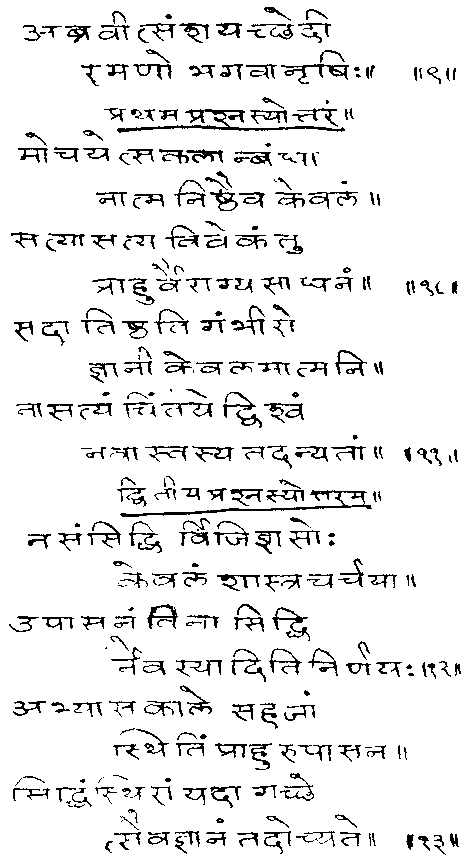 अब्रवीत्संशयच्छेदी
रमणो भगवानृषिः॥ ॥९॥
प्रथमप्रश्नस्योत्तरं॥
मोचयेत्सकलान्बंधा
नात्मनिष्ठैव केवलं॥
सत्यासत्य विवेकंतु
प्राहुर्वैराग्यसाधनं॥ ॥१०॥
सदा तिष्ठति गंभीरो
ज्ञानी केवलमात्मनि॥
नासत्यं चिंतयेद्विश्वं
नवास्तस्य तदन्यतां॥ ॥११॥
द्वितीयप्रश्नस्योत्तरम्॥
न संसिद्धि र्विजिज्ञासोः
केवलं शास्त्रचर्चया॥
उपासनं विना सिद्धि
र्नैव स्यादिति निर्णयः॥१२॥
अभ्यासकाले सहजां
स्थितिं प्राहुरुपासन॥
सिद्धिं स्थिरां यदा गच्छे
त्सैव ज्ञानं तदोच्यते॥ ॥१३॥